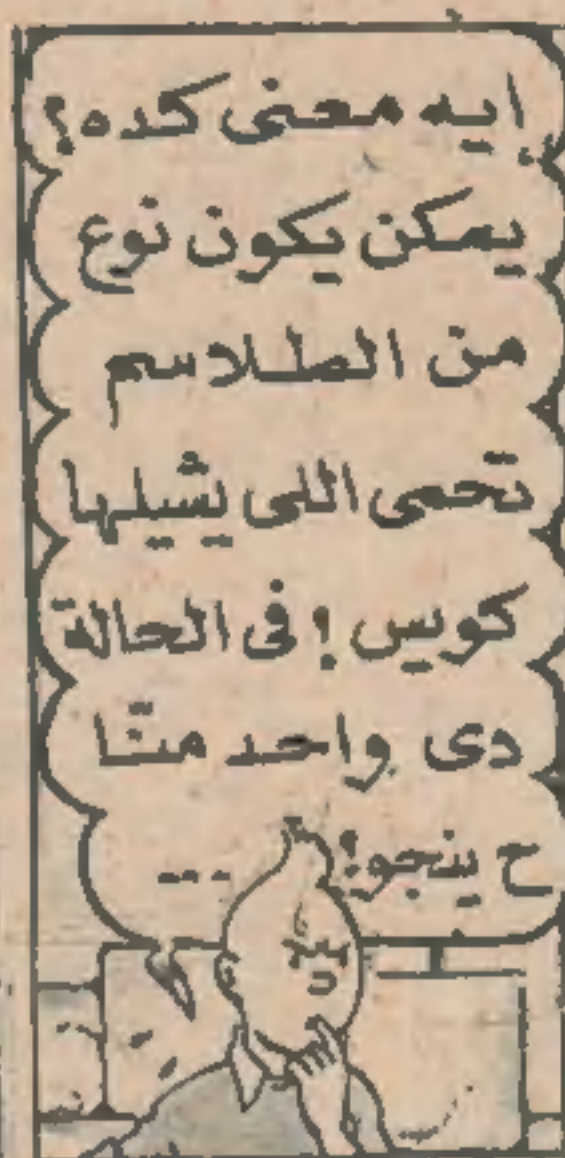 إيه معنى كده؟
يمكن يكون نوع
من الطلاسم
تحمى اللى يشيلها
كويس! فى الحالة
دى واحد منّا
ح ينجو! ...